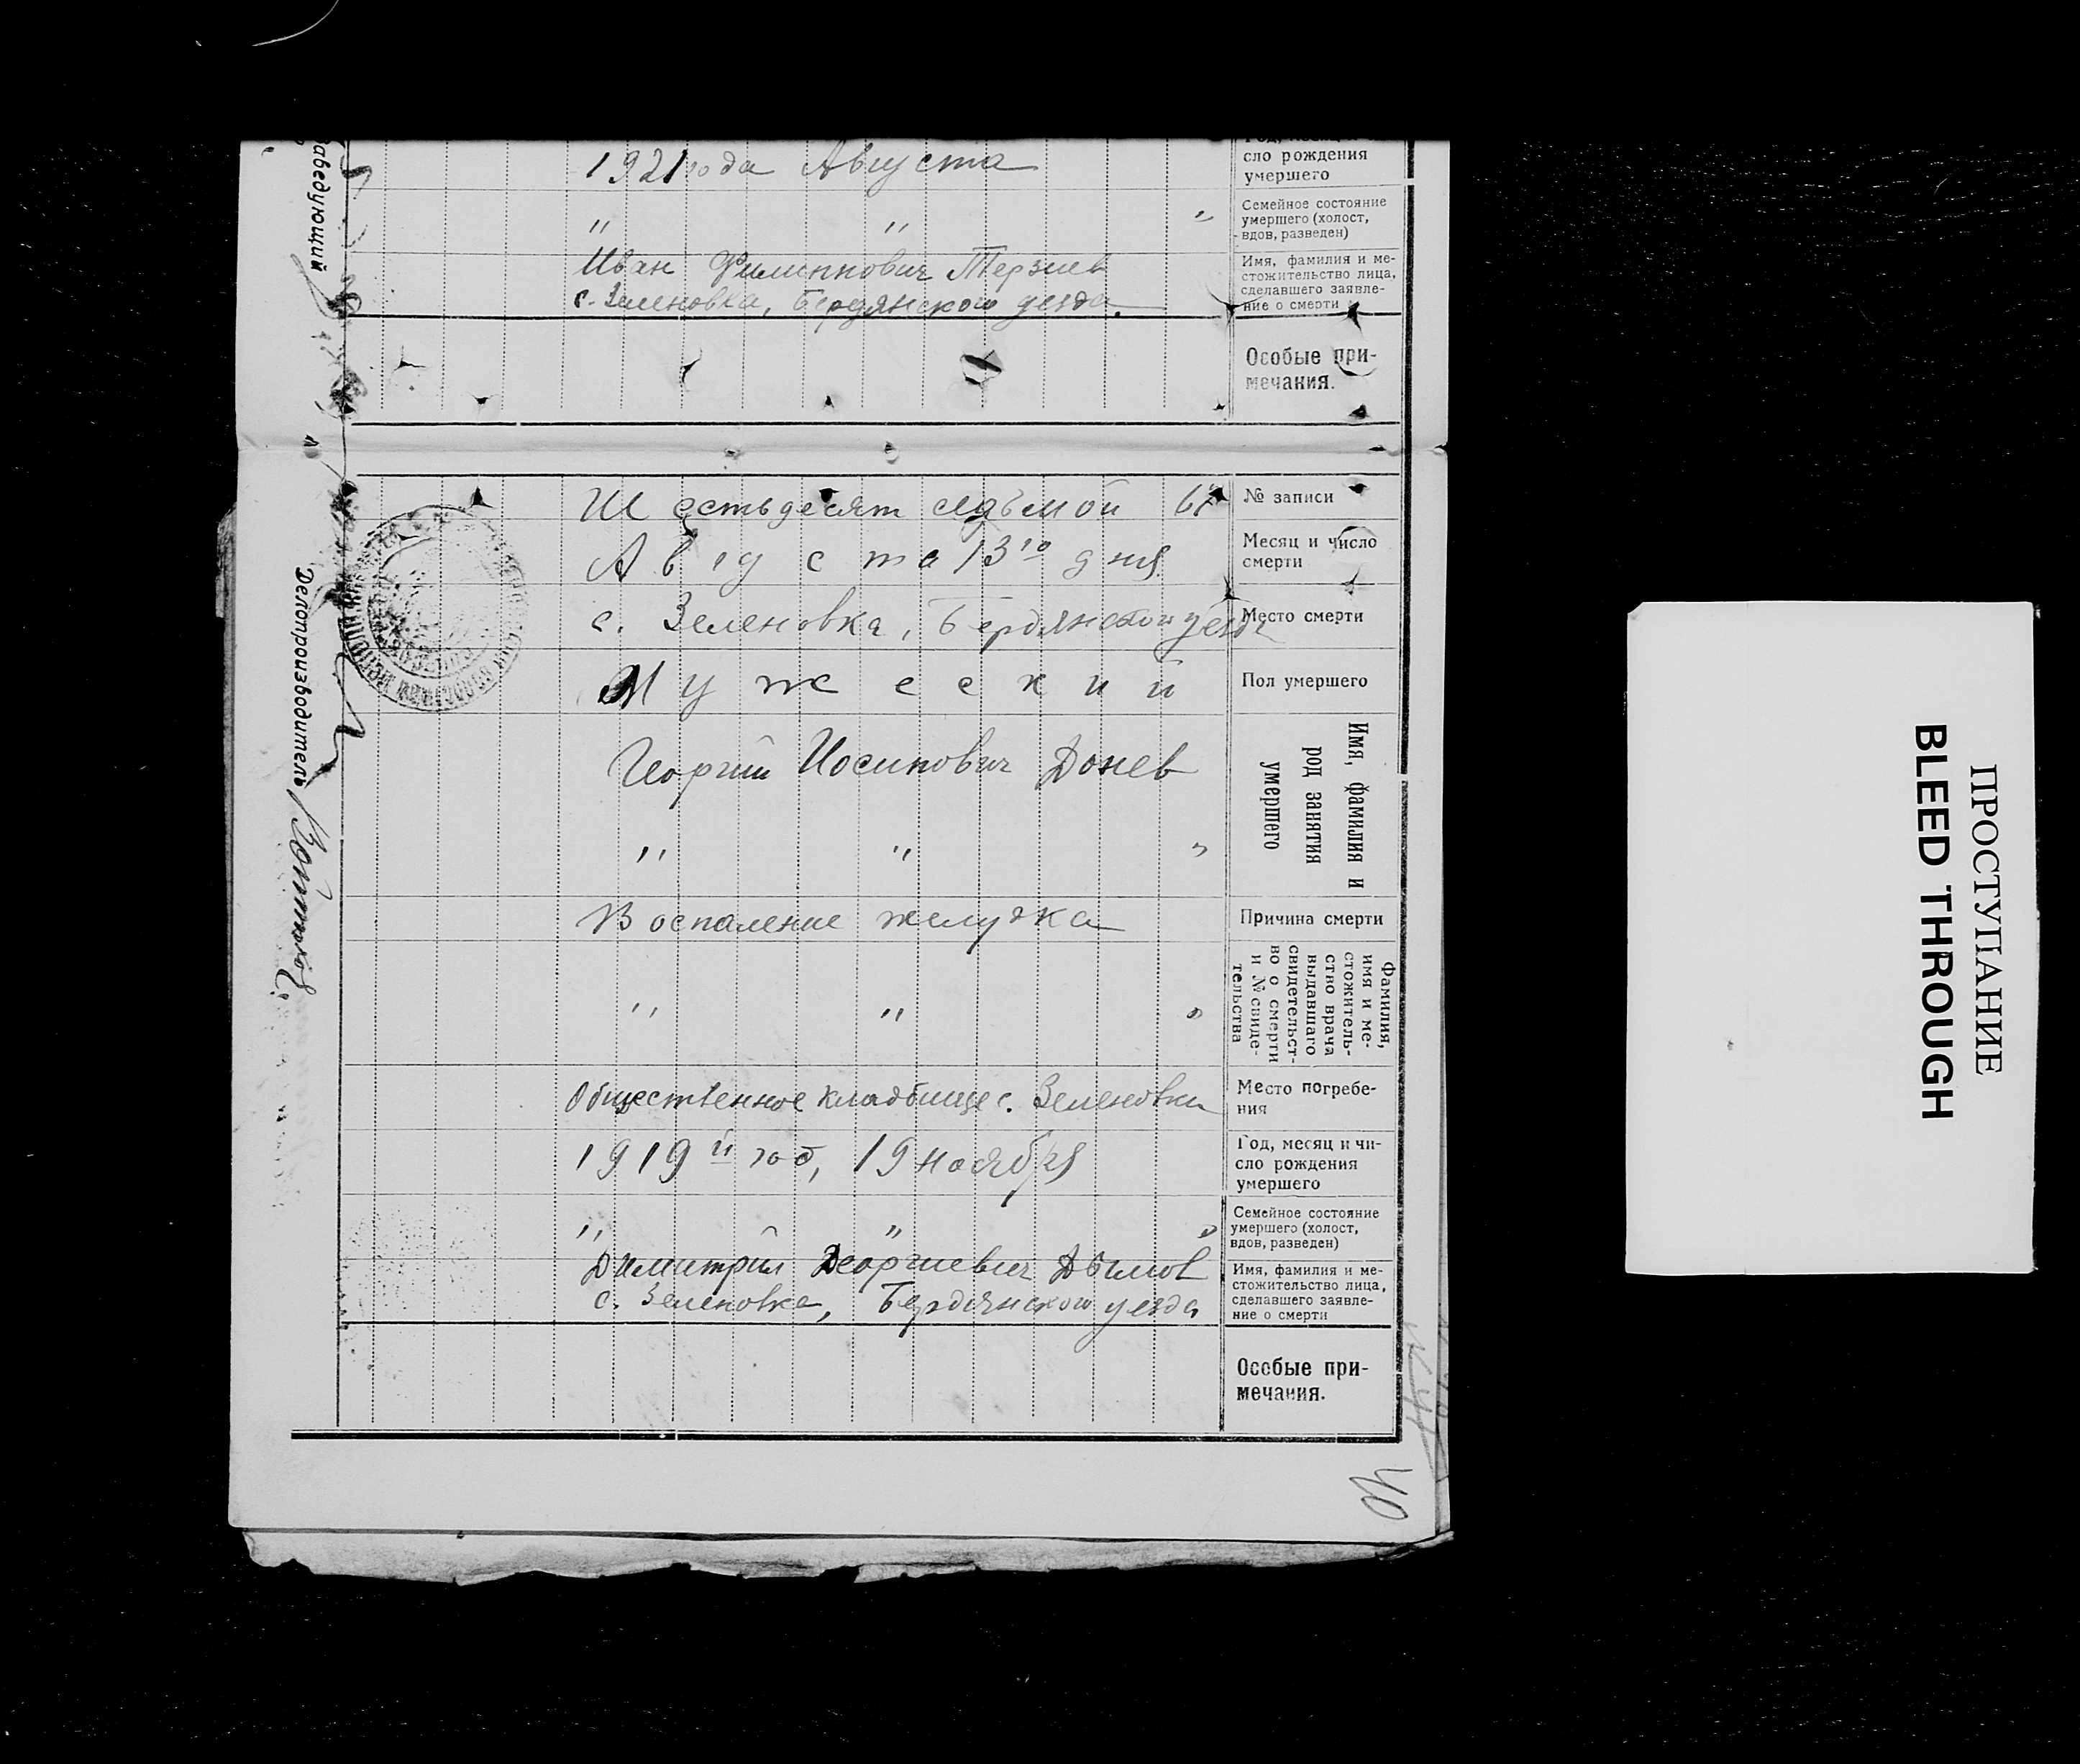 1921 года Августа
сло рождения
умершего
" " "
Семейное состояние
умершего (холост,
вдов, разведен)
Иван Филиппович Терзиев
с. Зеленовка, Бердянского уезда.
Имя, фамилия и ме-
стожительство лица,
сделавшего заявле-
ние о смерти
Особые при-
мечания.
Шестьдесят седьмой 67
№ записи
Августа 13го дня
Месяц и число
смерти
с. Зеленовка, Бердянского уезда
Место смерти
Мужеский
Пол умершего
Георгий Иосипович Донев
" " "
Имя, фамилия и
род занятия
умершего
Воспаление желудка
Причина смерти
" " "
Фамилия,
имя и ме-
стожитель-
ство врача
выдавшаго
свидетельст-
во о смерти
и № свиде-
тельства
Общественное кладбище с. Зеленовки
Место погребе-
ния
1919й год, 19 ноября
Год, месяц и чи-
сло рождения
умершего
" " "
Семейное состояние
умершего (холост,
вдов, разведен)
Димитрий Георгиевич Дымов
с. Зеленовка, Бердянского уезда
Имя, фамилия и ме-
стожительство лица,
сделавшего заявле-
ние о смерти
Особые при-
мечания.
аведующий
Делопроизводитель
40
ПРОСТУПАНИЕ
BLEED THROUGH